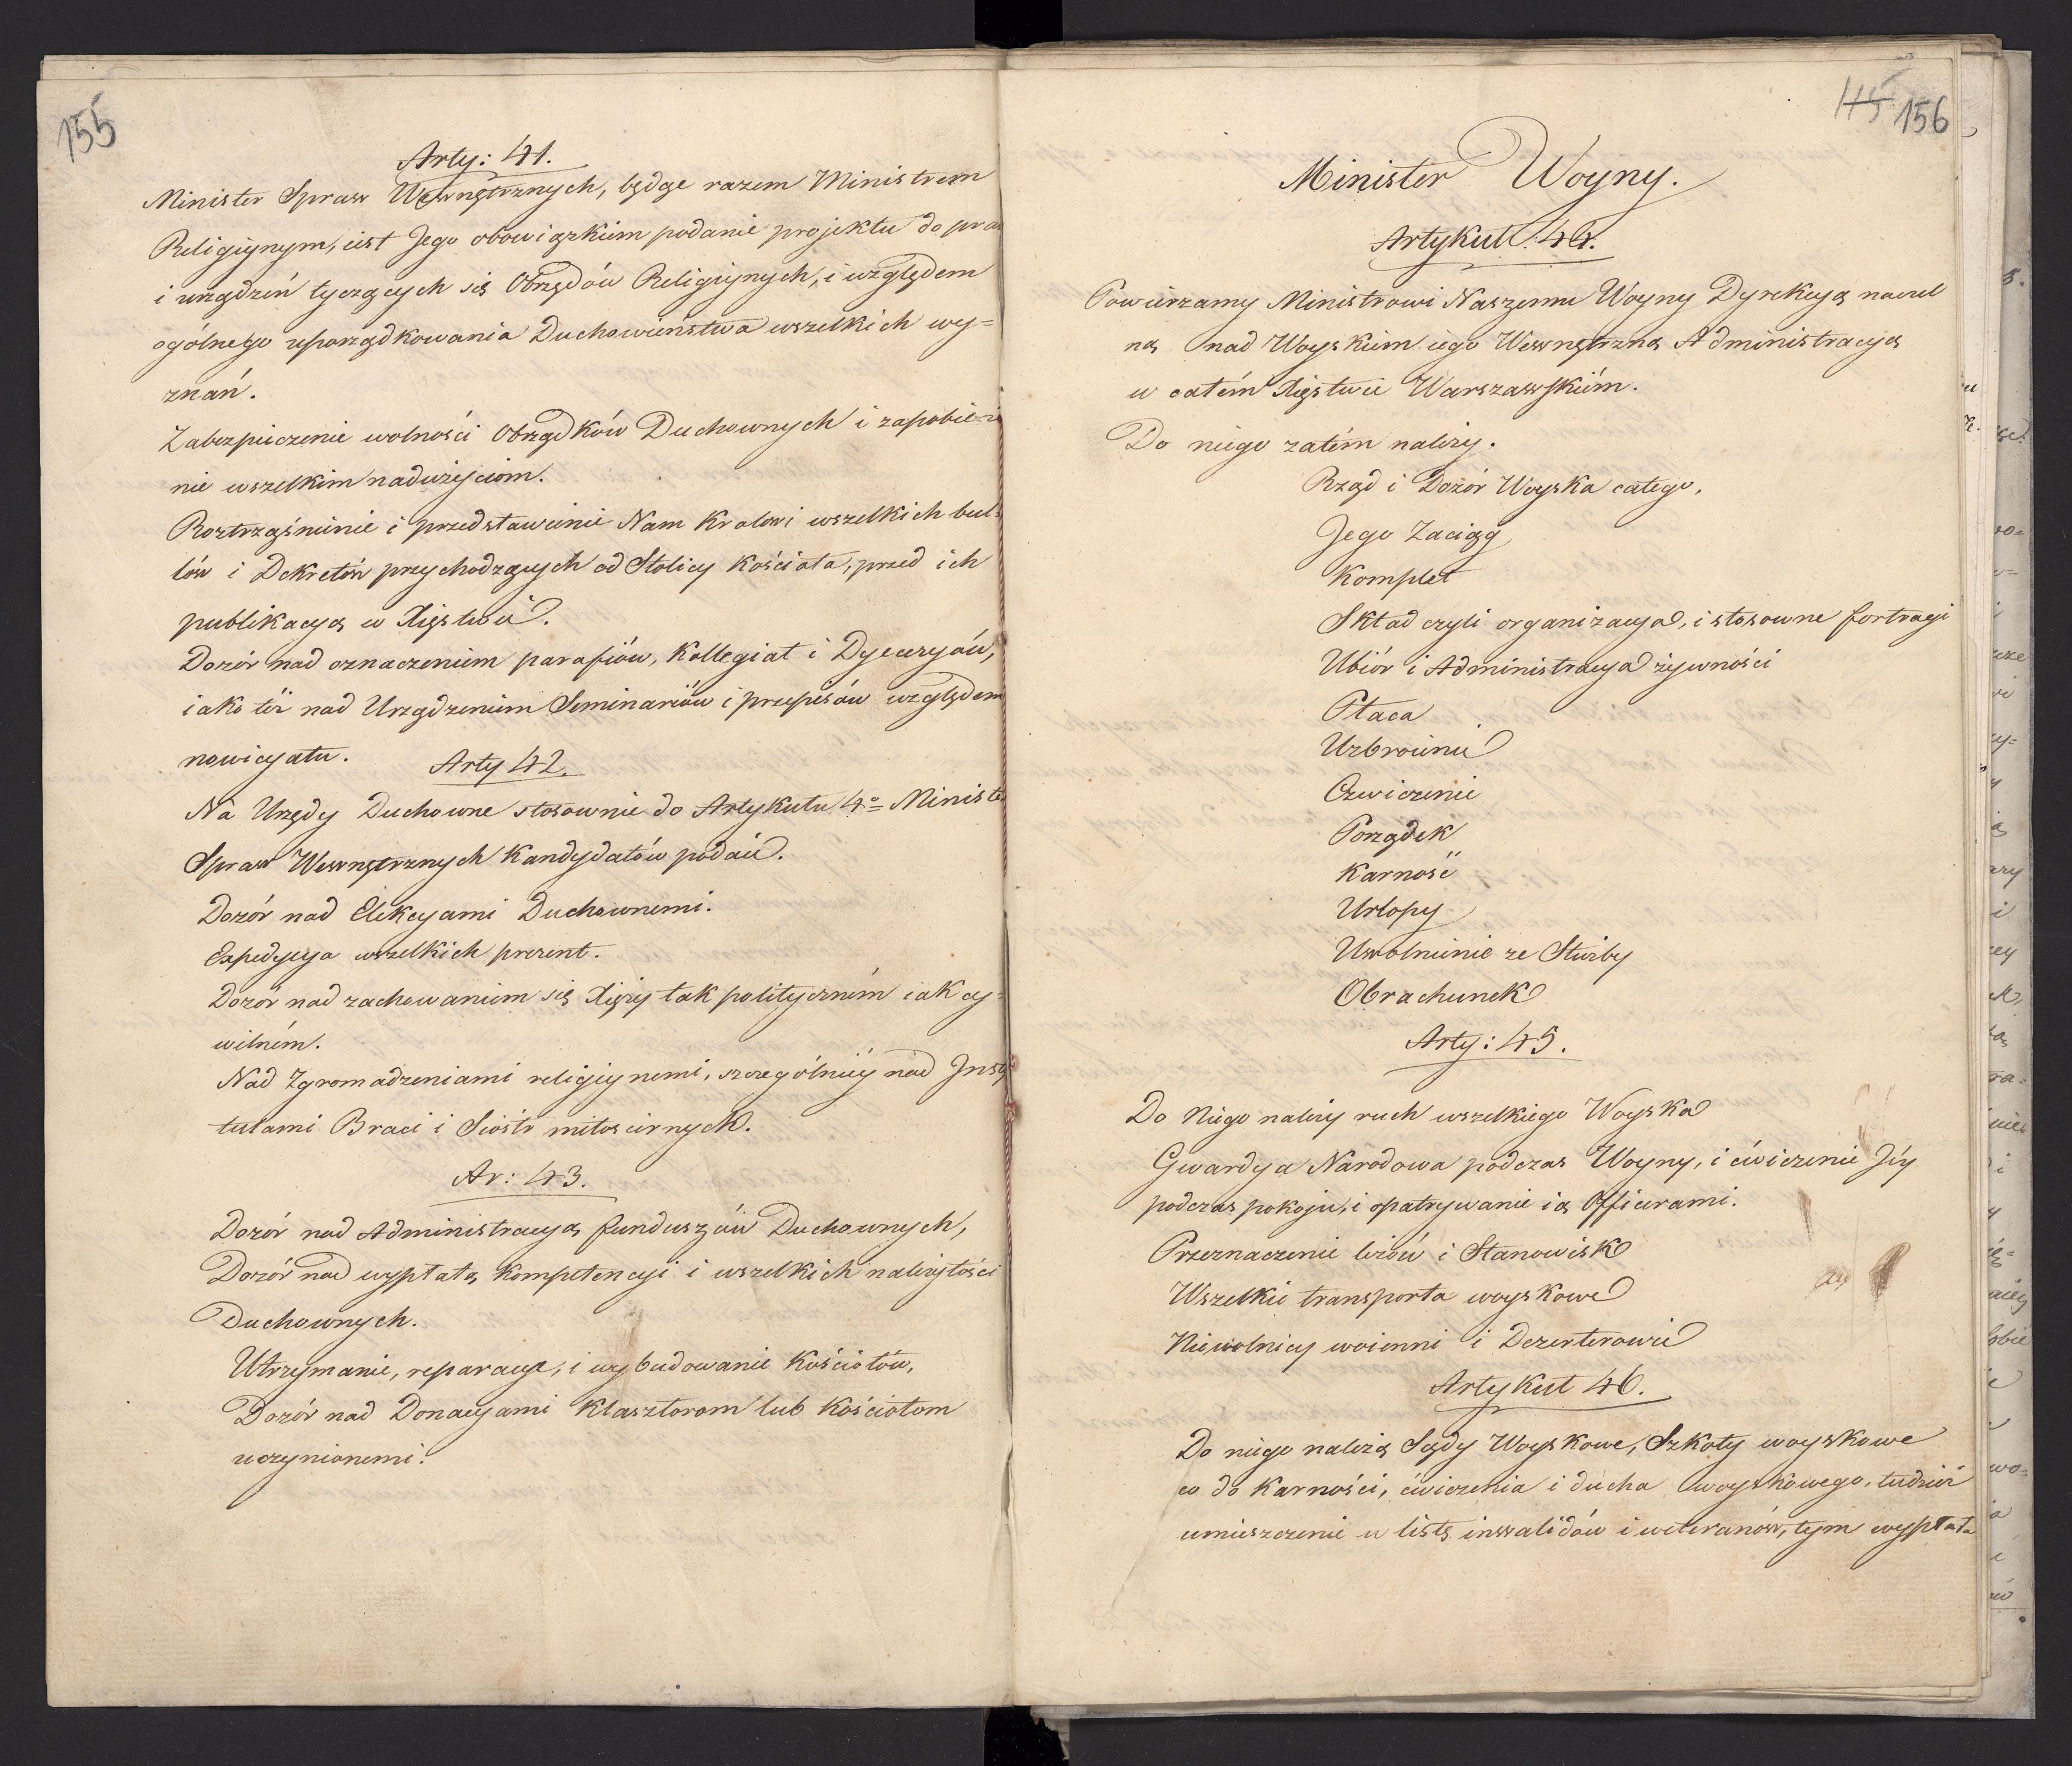 155
Arty: 41.
Minister Spraw Wewnętrznych, będąc razem Ministrem
Religiynym, iest Jego obowiązkiem podanie projektu do pra
i urządzeń tyczących się Obrzędów Religiynych, i względem
ogólnego uporządkowania Duchowieństwa wszelkich wy=
znań.
Zabezpieczenie wolności Obrządków Duchownych i zapobie=
nie wszelkim nadużyciom.
Roztrząśnienie i przedstawienie Nam Królowi wszelkich bul=
lów i Dekretów przychodzących od Stolicy Kościoła, przed ich
publikacyą w Xięstwie.
Dozór nad oznaczeniem parafiów, Kollegiat i Dyecezyów,
iako téż nad Urządzeniem Seminariów i przepisów względem
nowicyatu.
Arty 42.
Na Urzędy Duchowne stosownie do Artykułu 4º Ministe
Spraw Wewnętrznych Kandydatów podaie.
Dozór nad Elekcyami Duchownemi.
Expedycya wszelkich prezent.
Dozór nad zachowaniem się Xięży tak polityczném iak cy=
wilném.
Nad Zgromadzeniami religiynemi, szczególniéy nad Insty
tutami Braci i Sióstr miłosiernych.
Ar: 43.
Dozór nad Administracyą funduszów Duchownych,
Dozór nad wypłatą Kompetencyi i wszelkich należytości
Duchownych.
Utrzymanie, reparacye, i wybudowanie Kościołów,
Dozór nad Donacyami Klasztorom lub Kościołom
uczynionemi.
115 156
Minister Woyny.
Artykuł 44.
Powierzamy Ministrowi Naszemu Woyny Dyrekcyą naczel
ną nad Woyskiem iego Wewnętrzną Administracyą
w całém Xięstwie Warszawskiém.
Do niego zatém należy.
Rząd i Dozór Woyska całego,
Jego Zaciąg
Komplet
Skład czyli organizacya, i stosowne fortragi
Ubiór i Administracya żywności
Płaca
Uzbroienie
Czwiczenie
Porządek
Karność
Urlopy
Uwolnienie ze Służby
Obrachunek
Arty: 45.
Do Niego należy ruch wszelkiego Woyska
Gwardya Narodowa podczas Woyny, i ćwiczenie Jéy
podczas pokoju, i opatrywanie ią Officerami.
Przeznaczenie leżów i Stanowisk
Wszelkie transporta woyskowe
Niewolnicy woienni i Dezerterowie
Artykuł 46.
Do niego należą Sądy Woyskowe, Szkoły woyskowe
co do Karności, ćwiczenia i ducha woyskowego, tudzież
umieszczenie w listę inwalidów i weteranów, tym wypłata